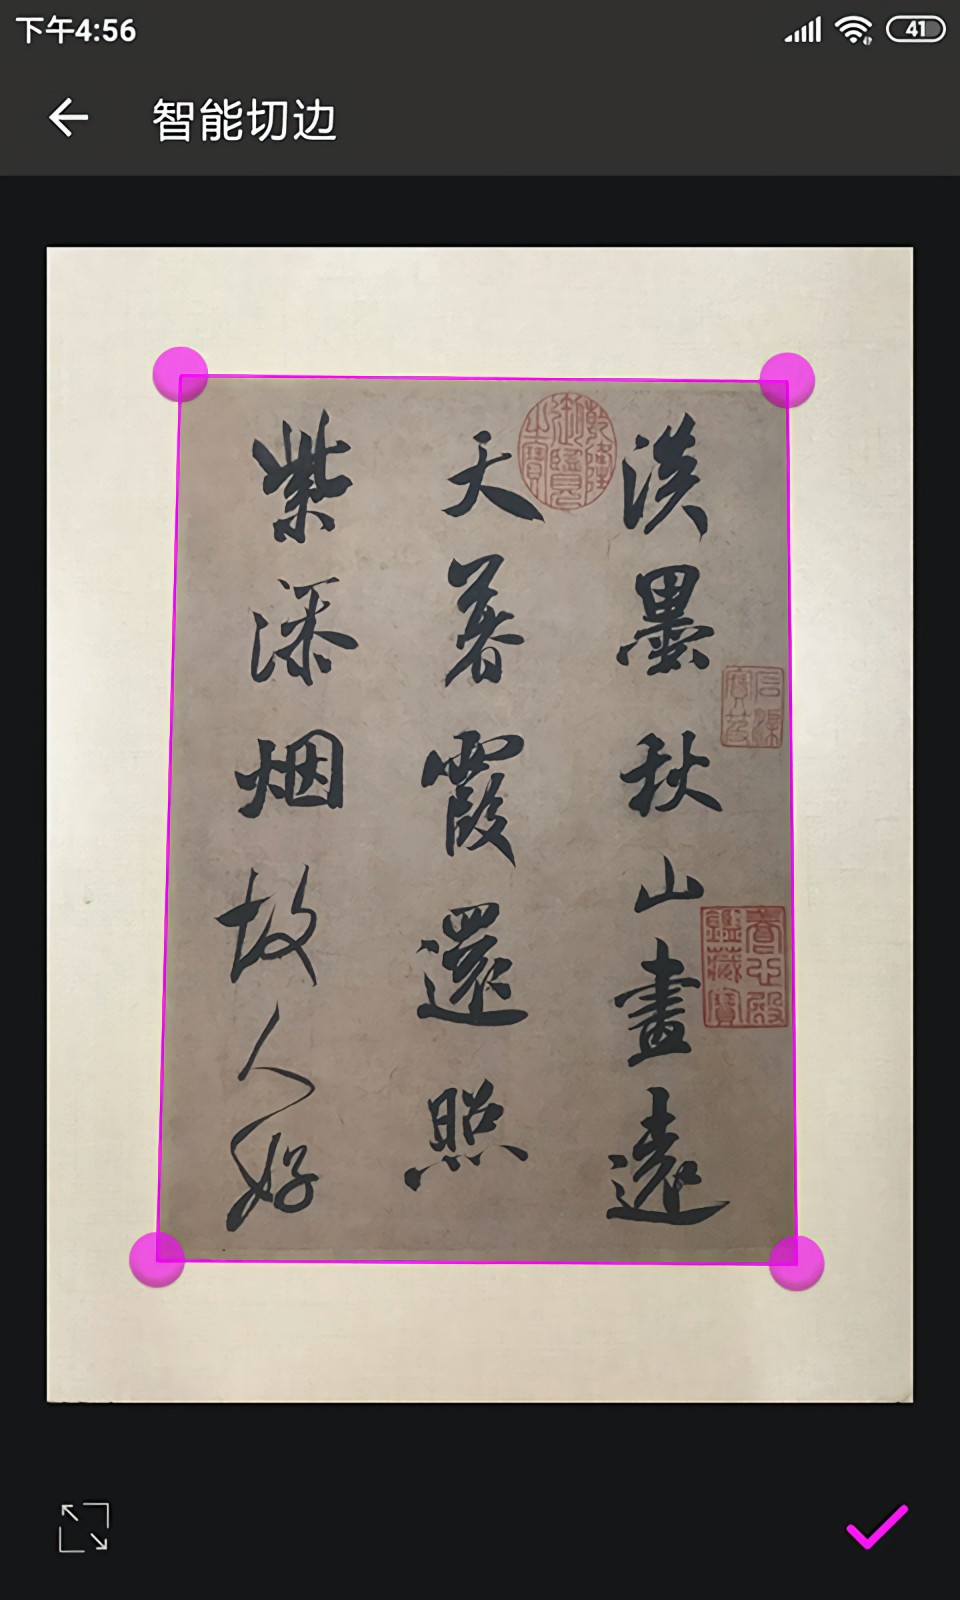 下午4:56
41
智能切边
淡墨秋山畫遠
天暮霞還照
紫添烟故人好
乾隆御覽之寶
石渠寶笈
養心殿鑑藏寶